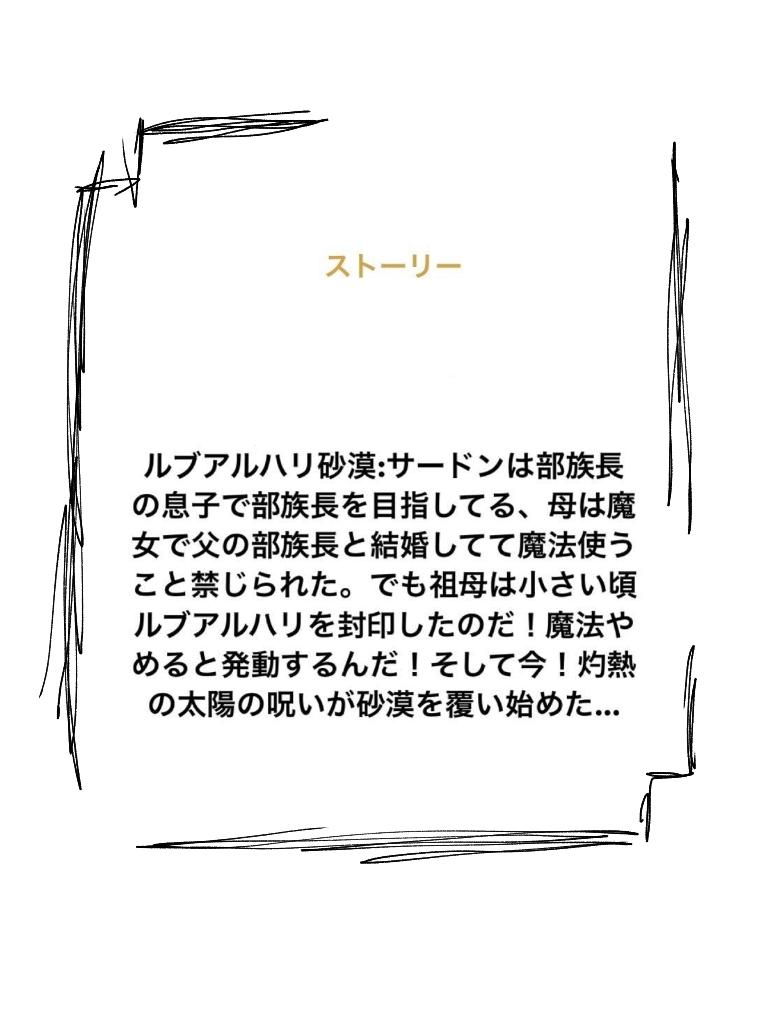 ストーリー
ルブアルハリ砂漠:サードンは部族長
の息子で部族長を目指してる、母は魔
女で父の部族長と結婚してて魔法使う
こと禁じられた。でも祖母は小さい頃
ルブアルハリを封印したのだ！魔法や
めると発動するんだ！そして今！灼熱
の太陽の呪いが砂漠を覆い始めた...